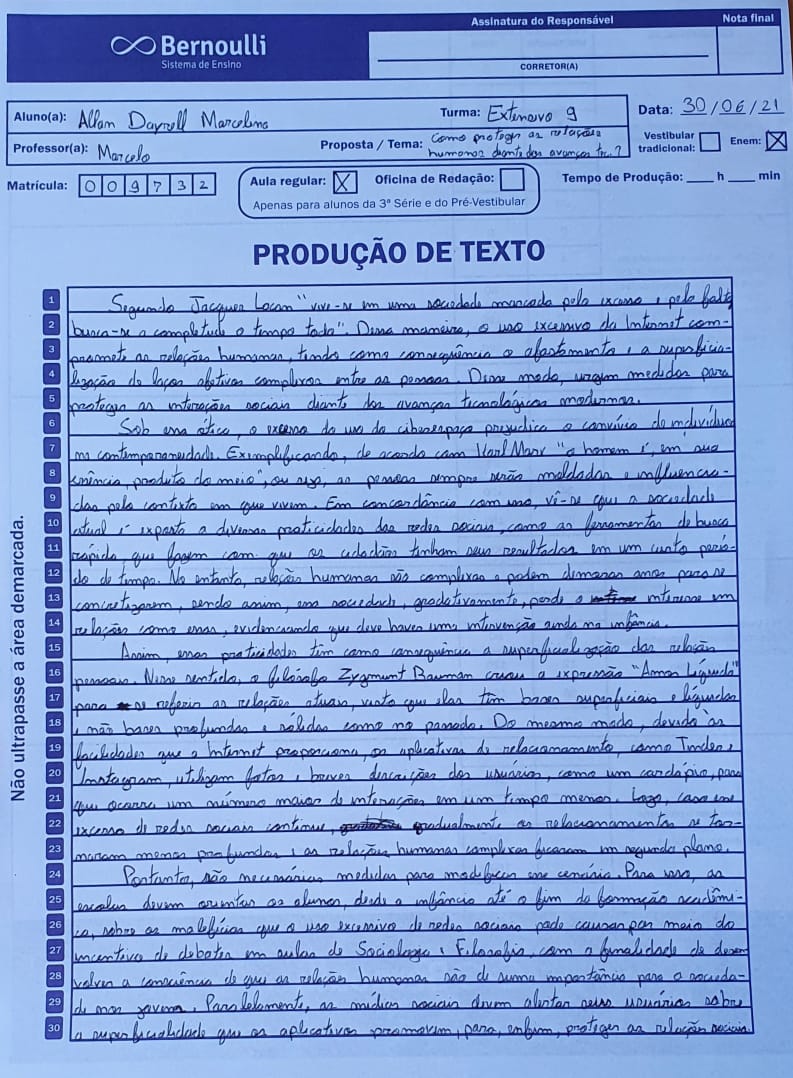 Bernoulli
Sistema de Ensino
Assinatura do Responsável
Nota final
CORRETOR(A)
Aluno(a): Allan Dayrell Marcelino
Turma: Extensivo 9
Data: 30/06/21
Professor(a): Marcelo
Proposta / Tema: Como proteger as relações humanas diante dos avanços tec.?
Vestibular tradicional:
Enem: X
Matrícula: 009732
Aula regular: X Oficina de Redação:
Apenas para alunos da 3ª Série e do Pré-Vestibular
Tempo de Produção: ____ h ____ min
PRODUÇÃO DE TEXTO
Não ultrapasse a área demarcada.
1 Segundo Jacques Lacan "vive-se em uma sociedade marcada pelo excesso e pela falta,
2 busca-se a completude o tempo todo". Dessa maneira, o uso excessivo da Internet com-
3 promete as relações humanas, tendo como consequência o afastamento e a superficia-
4 lização de laços afetivos complexos entre as pessoas. Desse modo, urgem medidas para
5 proteger as interações sociais diante dos avanços tecnológicos modernos.
6 Sob essa ótica, o excesso do uso do ciberespaço prejudica o convívio do indivíduo
7 na contemporaneidade. Exemplificando, de acordo com Karl Marx "o homem é, em sua
8 essência, produto do meio", ou seja, as pessoas sempre serão moldadas e influencia-
9 das pelo contexto em que vivem. Em concordância com isso, vê-se que a sociedade
10 atual é exposta a diversas praticidades das redes sociais, como as ferramentas de busca
11 rápida que fazem com que os cidadãos tenham seus resultados em um curto perío-
12 do de tempo. No entanto, relações humanas são complexas e podem demorar anos para se
13 concretizarem, sendo assim, essa sociedade, gradativamente, perde o interesse em
14 relações como essas, evidenciando que deve haver uma intervenção ainda na infância.
15 Assim, essas praticidades têm como consequência a superficialização das relações
16 pessoais. Nesse sentido, o filósofo Zygmunt Bauman criou a expressão "Amor Líquido"
17 para se referir as relações atuais, visto que elas têm bases superficiais e líquidas
18 e não bases profundas e sólidas como no passado. Do mesmo modo, devido às
19 facilidades que a Internet proporciona, os aplicativos de relacionamento, como Tinder e
20 Instagram, utilizam fotos e breves descrições dos usuários, como um cardápio, para
21 que ocorra um número maior de interações em um tempo menor. Logo, caso esse
22 excesso de redes sociais continue, gradualmente os relacionamentos se tor-
23 nariam menos profundos e as relações humanas complexas ficaram em segundo plano.
24 Portanto, são necessárias medidas para modificar esse cenário. Para isso, as
25 escolas devem orientar os alunos, desde a infância até o fim da formação acadêmi-
26 ca, sobre os malefícios que o uso excessivo de redes sociais pode causar por meio do
27 incentivo de debates em aulas de Sociologia e Filosofia, com a finalidade de desen
28 volver a consciência de que as relações humanas são de suma importância para a socieda-
29 de mas jovem. Paralelamente, as mídias sociais devem alertar seus usuários sobre
30 a superficialidade que os aplicativos promovem, para, enfim, proteger as relações sociais.